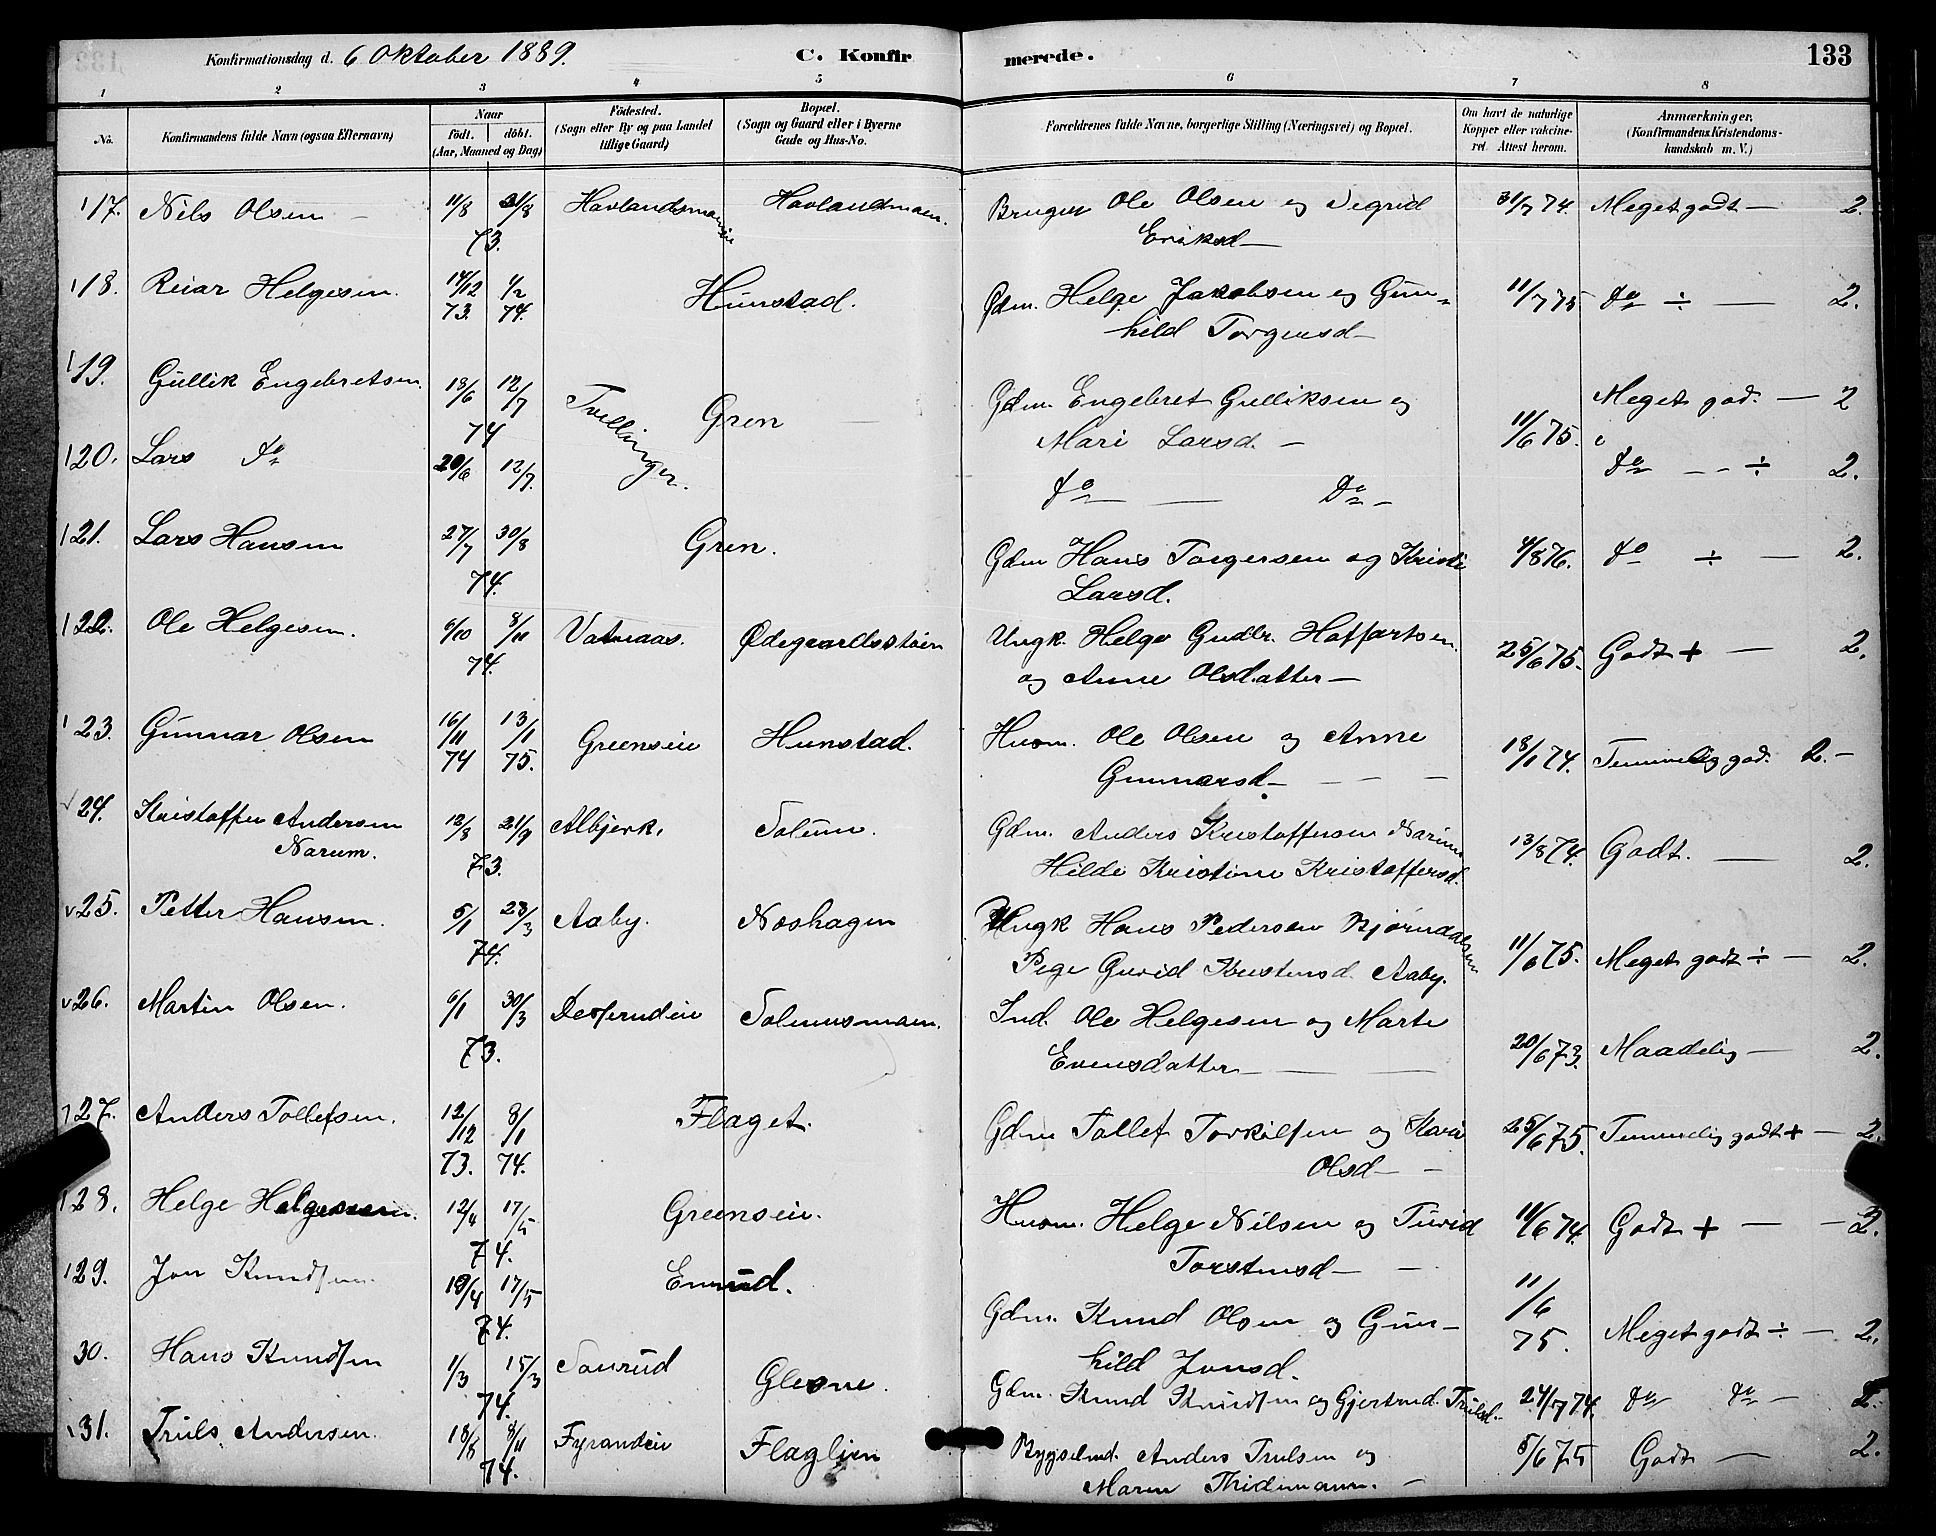 Konfirmationsdag d. 6 Oktober 1889. C. Konfirmerede. 133
1 2 3 4 5 6 7 8
No. Konfirmandens fulde Navn (ogsaa Efternavn) Naar født. døbt. (Aar, Maaned og Dag) Fødested. (Sogn eller By og paa Landet tillige Gaard) Bopæl. (Sogn og Gaard eller i Byerne Gade og Hus-No. Forældrenes fulde Navne, borgerlige Stilling (Næringsvei) og Bopæl. Om havt de naturlige Kopper eller vakcineret. Attest herom. Anmærkninger. (Konfirmandens Kristendomskundskab m. V.)
17. Nils Olsen 11/8 31/8 Havlandsmoen Havlandsmoen. Bruger Ole Olsen og Sigrid 31/7 74. Meget godt — 2.
73. Eriksd —
18. Reiar Helgesen. 14/12 1/2 Hunstad. Gdm. Helge Jakobsen og Gun- 11/7 75 do ÷ — 2.
73. 74. hild Torgersd —
19. Gullik Engebretsen. 18/6 12/7 Tvillinger. Gren Gdm. Engebret Gulliksen og 11/6 75. Meget god. — 2
74 Mari Larsd. —
20. Lars do 20/6 12/7. do — Do — do — ÷ 2.
21. Lars Hansen 27/7 30/8 Gren. Gdm Hans Torgersen og Kristi 4/8 76. do ÷ — 2.
74. Larsd.
22. Ole Helgesen. 6/10 8/11 Vatnaas. Ødegaardsstøen Ungk. Helge Gudbr. Hoffartsen 25/6 75. Godt + — 2.
74. og Anne Olsdatter —
23. Gunnar Olsen 16/11 13/1 Greenseie Hunstad. Husm. Ole Olsen og Anne 18/1 74. Temmelig god. 2. —
74 75. Gunnarsd —
24. Kristoffer Andersen 12/8 21/9 Albjerk. Solum. Gdm. Anders Kristoffersen Narum 13/8 74. Godt. — 2.
Narum. 73. Hilde Kristine Kristoffersd.
25. Petter Hansen. 5/1 23/3 Aaby. Næshagen Ungk Hans Pedersen Bjørndalsen 11/6 75. Meget godt ÷ — 2.
74. Pige Gurid Kristensd. Aaby.
26. Martin Olsen. 6/1 30/3 Solumsmoen. Ind. Ole Helgesen og Marte 20/6 73. Maadelig — 2.
73. Evensdatter —
27. Anders Tollefsen. 12/12 8/1 Flaget. Gdm Tollef Torkilsen og Kari 25/6 75. Temmelig godt + — 2.
73. 74. Olsd —
28. Helge Helgesen. 12/4 17/5 Greenseie. Husm. Helge Nilsen og Turid 11/6 74. Godt + — 2.
74. Torstensd —
29. Jon Knudsen. 19/4 17/5 Enerud. Gdm. Knud Olsen og Gun- 11/6 75. Meget godt ÷ — 2.
74. hild Jonsd.
30. Hans Knudsen 1/3 15/3 Glesne. Gdm. Knud Knudsen og Gjertrud Trulsd. 24/7 74. do do — 2.
74.
31. Truls Andersen. 18/8 8/11 Fyrandeie Flaglien Bygselmd. Anders Trulsen og 5/6 75 Godt — 2.
74. Maren Thidemann. —